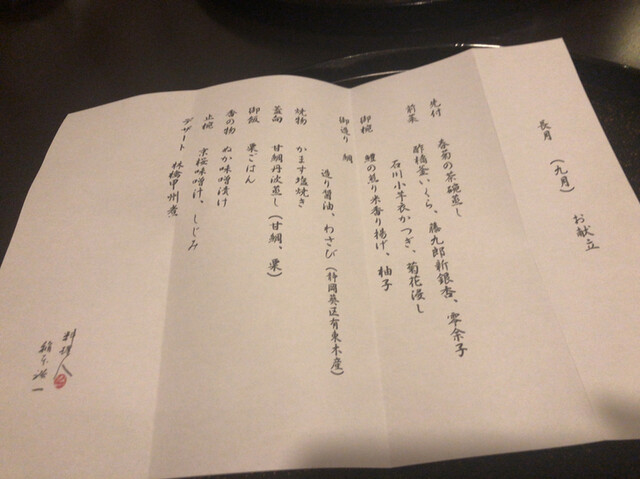 長月 (九月) お献立
先付 春菊の茶碗蒸し
前菜 酢橘釜いくら、藤九郎新銀杏、零余子
石川小芋衣かつぎ、菊花浸し
御椀 鱧の煎り米香り揚げ、柚子
御造り 鯛
造り醤油、わさび(静岡葵区有東木産)
焼物 かます塩焼き
蓋向 甘鯛丹波蒸し(甘鯛、栗)
御飯 栗ごはん
香の物 ぬか味噌漬け
止椀 京桜味噌汁、しじみ
デザート 林檎甲州煮
料理人